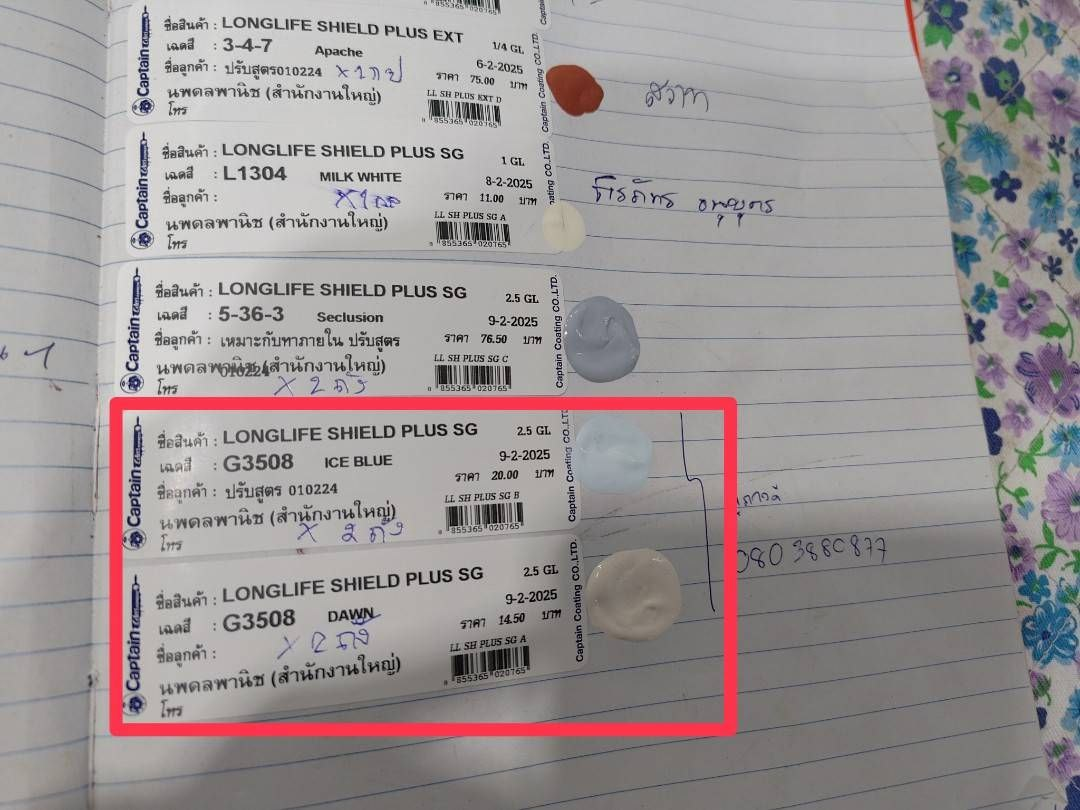 855365 020765
Captain
ชื่อสินค้า : LONGLIFE SHIELD PLUS EXT 1/4 GL
เฉดสี : 3-4-7 Apache 6-2-2025
ชื่อลูกค้า : ปรับสูตร010224 ราคา 75.00 บาท
นพดลพานิช (สำนักงานใหญ่) LL SH PLUS EXT D
โทร 9 855365 020765
Captain Coating CO.,LTD.
Captain
ชื่อสินค้า : LONGLIFE SHIELD PLUS SG 1 GL
เฉดสี : L1304 MILK WHITE 8-2-2025
ชื่อลูกค้า : ราคา 11.00 บาท
นพดลพานิช (สำนักงานใหญ่) LL SH PLUS SG A
โทร 9 855365 020765
ating CO.,LTD.
Captain
ชื่อสินค้า : LONGLIFE SHIELD PLUS SG 2.5 GL
เฉดสี : 5-36-3 Seclusion 9-2-2025
ชื่อลูกค้า : เหมาะกับทาภายใน ปรับสูตร ราคา 76.50 บาท
010224
นพดลพานิช (สำนักงานใหญ่) LL SH PLUS SG C
โทร X 2 ถัง 9 855365 020765
Captain Coating CO.,LTD.
Captain
ชื่อสินค้า : LONGLIFE SHIELD PLUS SG 2.5 GL
เฉดสี : G3508 ICE BLUE 9-2-2025
ชื่อลูกค้า : ปรับสูตร 010224 ราคา 20.00 บาท
นพดลพานิช (สำนักงานใหญ่) LL SH PLUS SG B
โทร X 2 ถัง 9 855365 020765
Captain Coating CO.,LTD.
Captain
ชื่อสินค้า : LONGLIFE SHIELD PLUS SG 2.5 GL
เฉดสี : G3508 DAWN 9-2-2025
ชื่อลูกค้า : X 2 ถัง ราคา 14.50 บาท
นพดลพานิช (สำนักงานใหญ่) LL SH PLUS SG A
โทร 9 855365 020765
Captain Coating CO.,LTD.
080 3880877